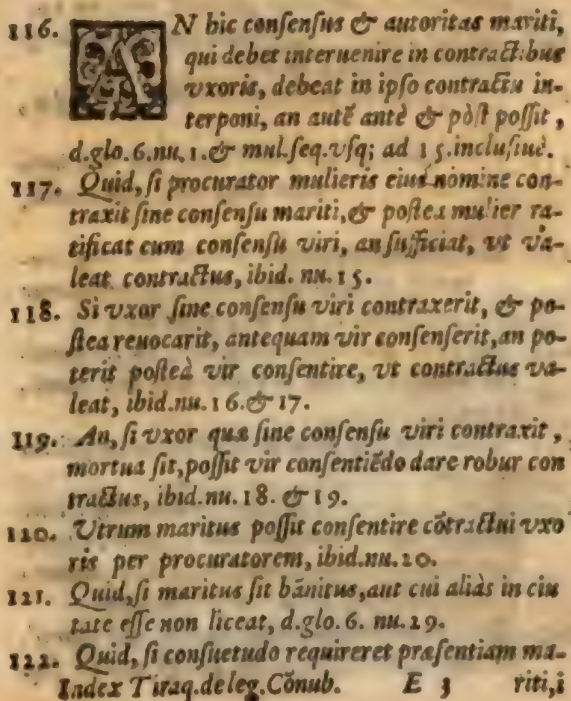 116. AN hic conſenſus & autoritas mariti,
qui debet interuenire in contractibus
vxoris, debeat in ipſo contractu in-
terponi, an autē antè & pòſt poſſit,
d.glo.6.nu.1.& mul.ſeq.vſq; ad 15.incluſiuè.
117. Quid, ſi procurator mulieris eius nomine con-
traxit ſine conſenſu mariti, & poſtea mulier ra-
tificat cum conſenſu viri, an ſufficiat, vt va-
leat contractus, ibid. nu. 15.
118. Si vxor ſine conſenſu viri contraxerit, & po-
ſtea reuocarit, antequam vir conſenſerit, an po-
terit poſteà vir conſentire, vt contractus va-
leat, ibid.nu.16.& 17.
119. An, ſi vxor quæ ſine conſenſu viri contraxit,
mortua ſit, poſſit vir conſentiēdo dare robur con
tractus, ibid.nu.18. & 19.
120. Utrum maritus poſſit conſentire cōtractui vxo
ris per procuratorem, ibid.nu.20.
121. Quid, ſi maritus ſit bānitus, aut cui aliàs in ciui
tate eſſe non liceat, d.glo.6. nu.29.
122. Quid, ſi conſuetudo requireret præſentiam ma-
Index Tiraq.de leg.Cōnub. E 3 riti,i